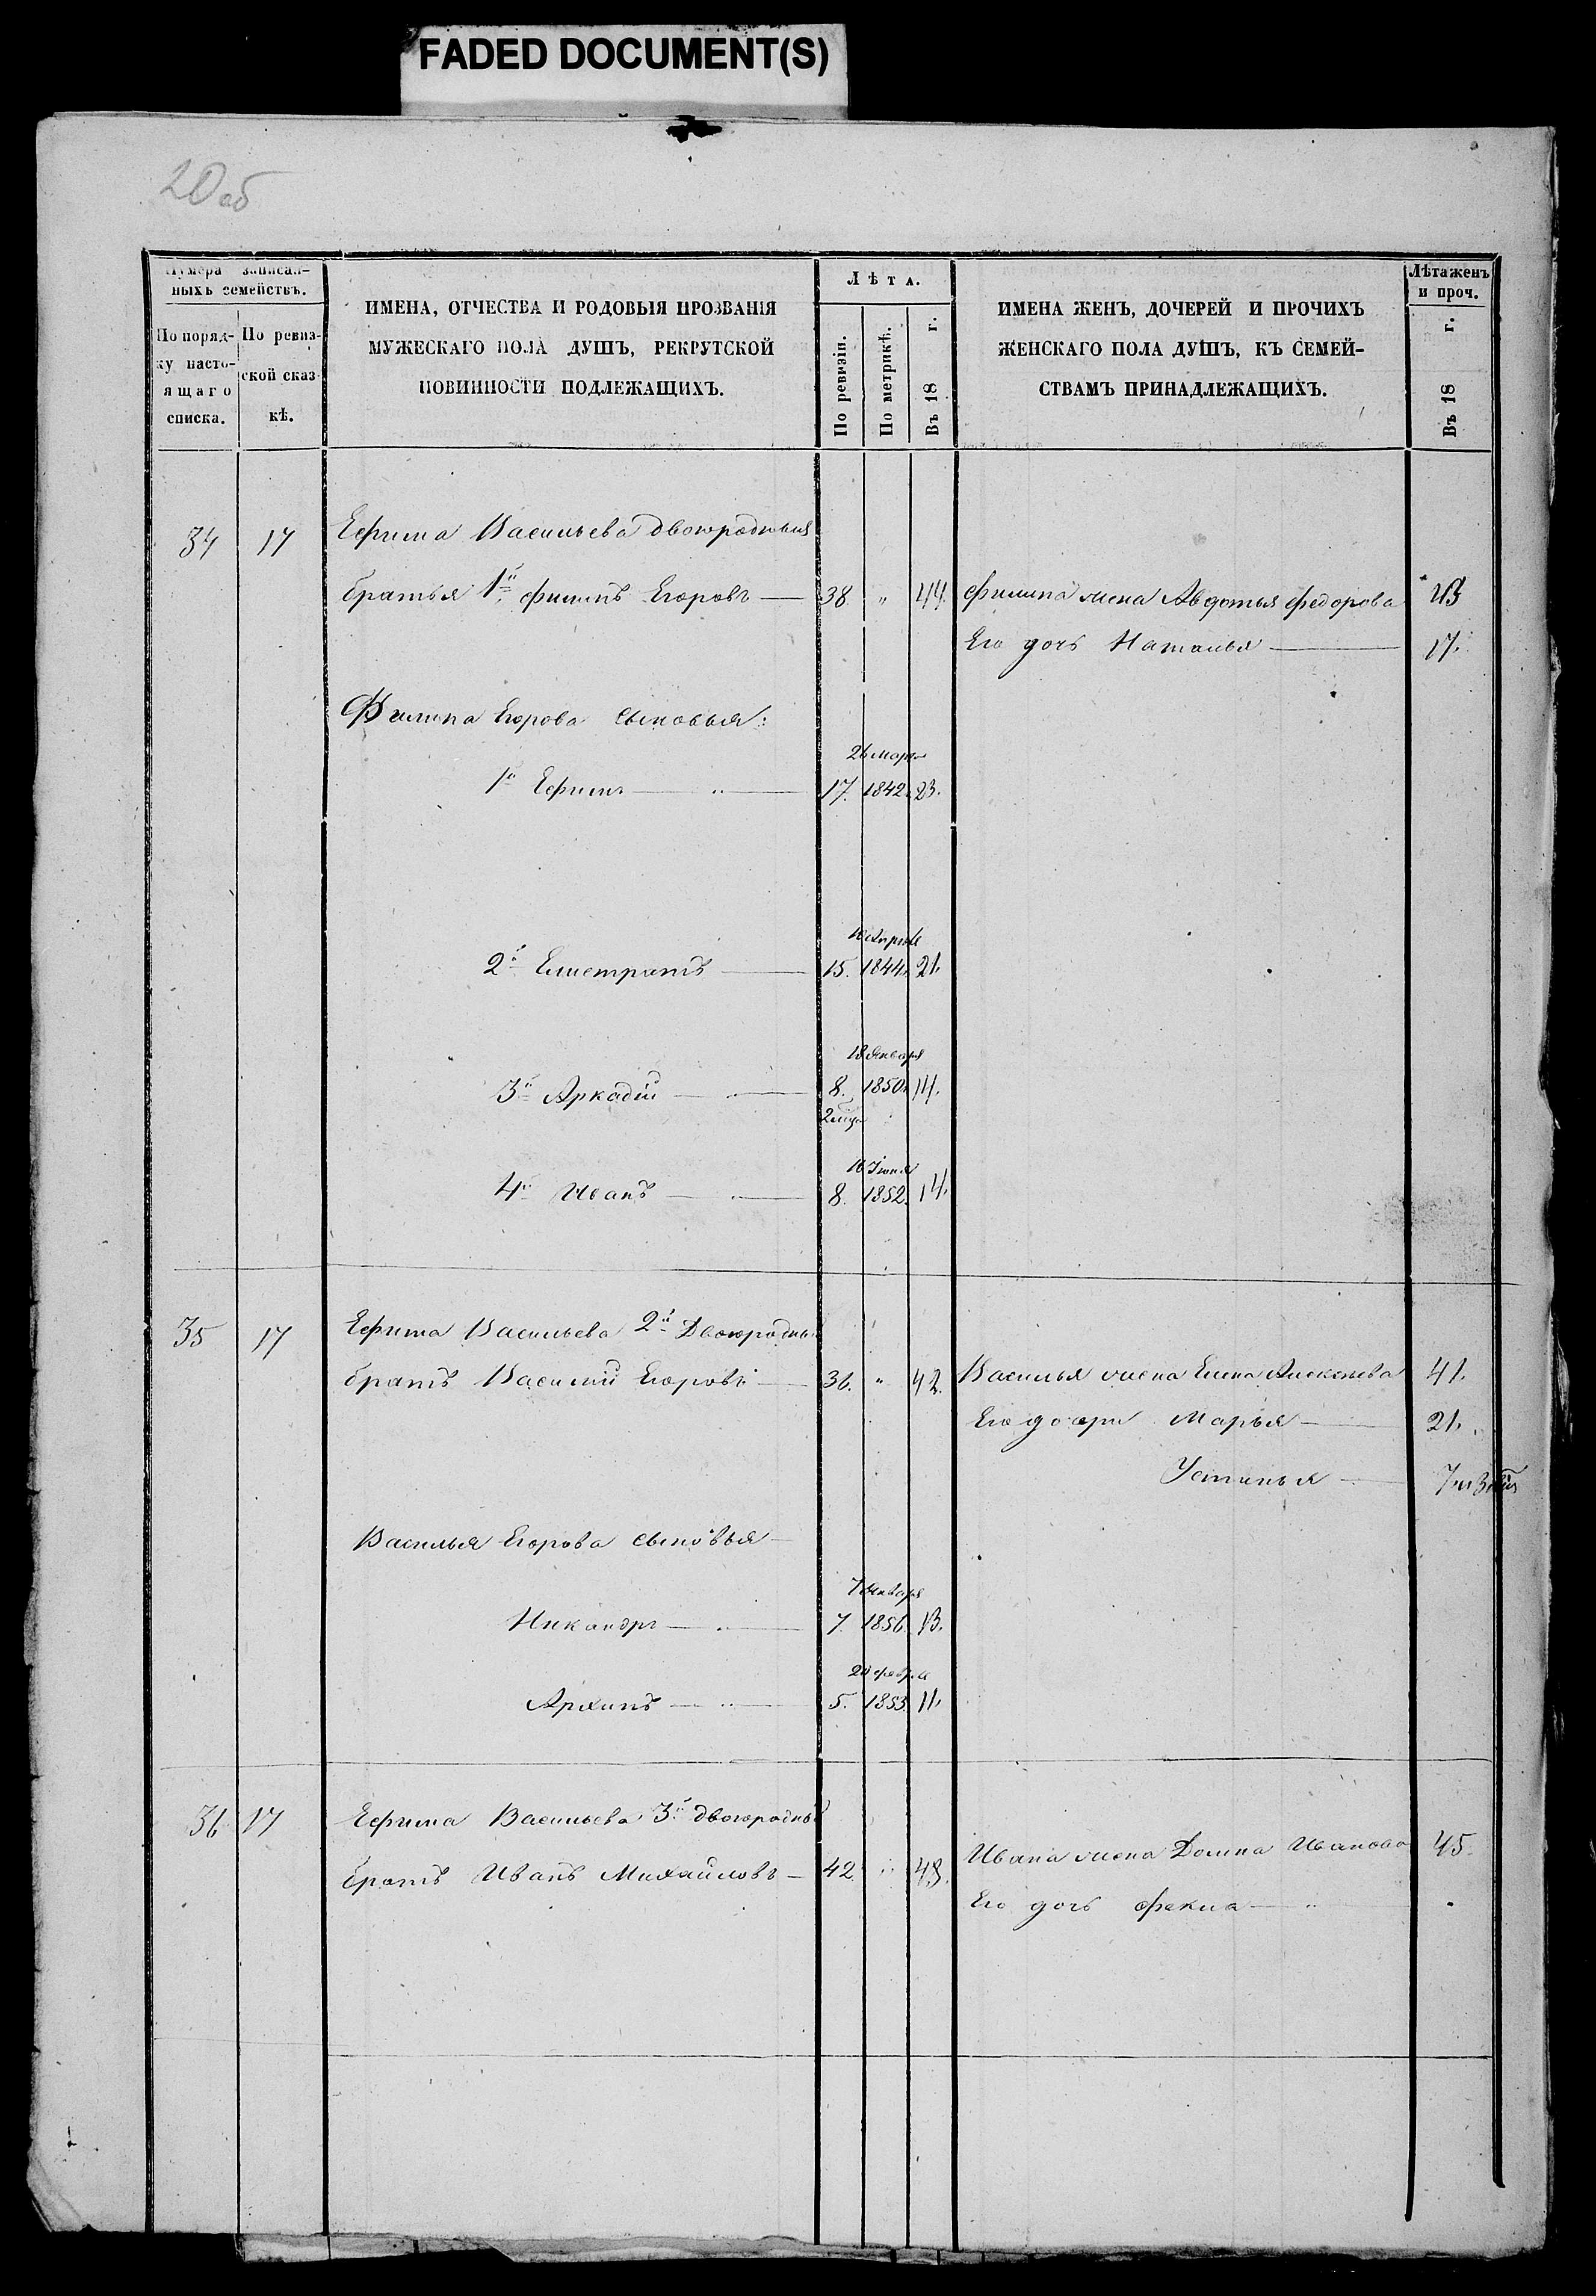 FADED DOCUMENT(S)
20 об
Нумера записан-
ныхъ семействъ.
По поряд-
ку насто-
ящаго
списка.
По ревиз-
ской сказ-
кѣ.
ИМЕНА, ОТЧЕСТВА И РОДОВЫЯ ПРОЗВАНІЯ
МУЖЕСКАГО ПОЛА ДУШЪ, РЕКРУТСКОЙ
ПОВИННОСТИ ПОДЛЕЖАЩИХЪ.
Лѣта.
По ревизіи.
По метрикѣ.
Въ 18 г.
ИМЕНА ЖЕНЪ, ДОЧЕРЕЙ И ПРОЧИХЪ
ЖЕНСКАГО ПОЛА ДУШЪ, КЪ СЕМЕЙ-
СТВАМЪ ПРИНАДЛЕЖАЩИХЪ.
Лѣта женъ
и проч.
Въ 18 г.
34 17 Ефима Васильева двоюродныя
братья 1й Филипъ Егоровъ — 38. " 44. Филипа жена Авдотья Федорова 43
Его дочь Наталья — 17.
Филипа Егорова сыновья:
26 Мар
1й Ефимъ — " — 17. 1842. 23.
Апрѣл
2й Елистратъ — 15. 1844. 21.
18 Января
3й Аркадій — 8. 1850. 14.
2 мѣс
16 Іюня
4й Иванъ — 8. 1852. 14.
35 17 Ефима Васильева 2й Двоюродный
братъ Василий Егоровъ — 36. " 42. Василья жена Елена Алексеева 41.
Его дочери Марья — 21.
Устинья — 7
Василья Егорова сыновья —
7 Января
Никандръ — 7. 1856. 13.
Февра
Архипъ — " — 5. 1853. 11.
36 17 Ефима Васильева 3й двоюродный
братъ Иванъ Михайловъ — 42. " 48. Ивана жена Домна Иванова 45.
Его дочь Фекла — "